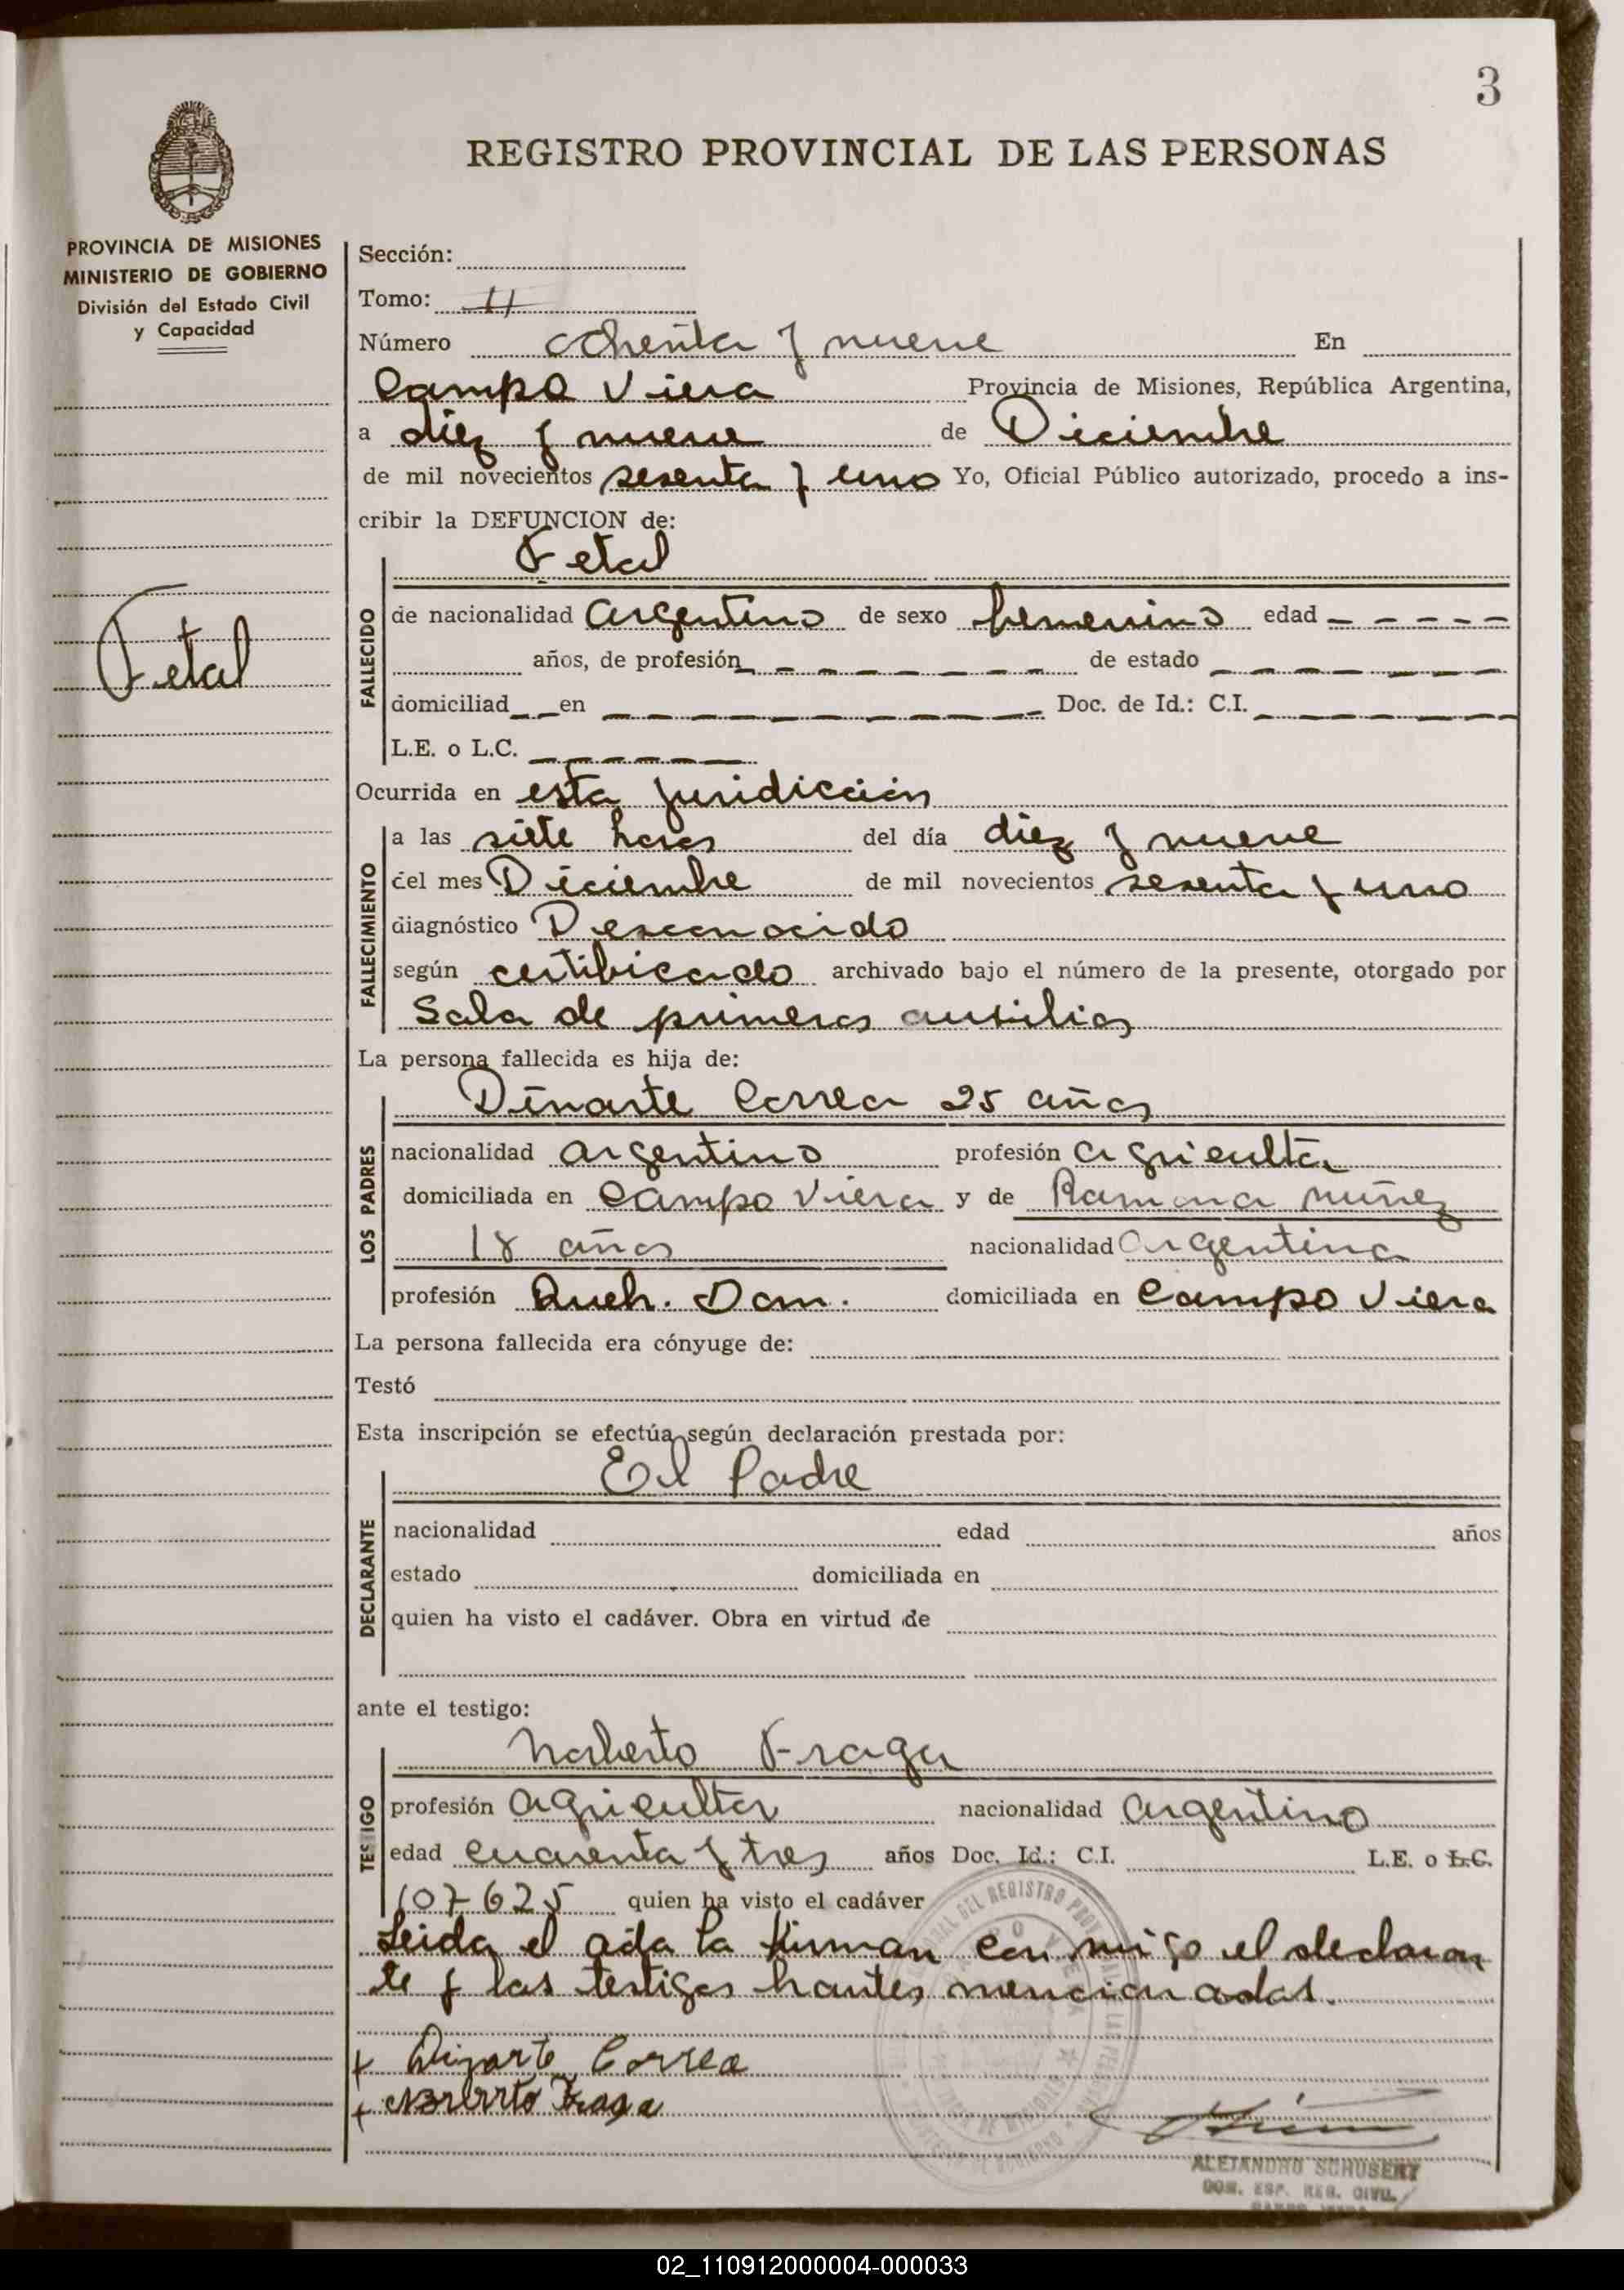 3
REGISTRO PROVINCIAL DE LAS PERSONAS
PROVINCIA DE MISIONES
MINISTERIO DE GOBIERNO
División del Estado Civil
y Capacidad
Fetal
Sección:
Tomo: II
Número ochenta y nueve En
Campo Viera Provincia de Misiones, República Argentina,
a diez y nueve de Diciembre
de mil novecientos sesenta y uno Yo, Oficial Público autorizado, procedo a ins-
cribir la DEFUNCION de:
Fetal
FALLECIDO
de nacionalidad argentino de sexo femenino edad - - - - -
años, de profesión - - - - - - - de estado - - - - - -
domiciliad__en - - - - - - - - - Doc. de Id.: C.I. - - - - - -
L.E. o L.C. - - - - - -
Ocurrida en esta juridición
FALLECIMIENTO
a las siete horas del día diez y nueve
del mes Diciembre de mil novecientos sesenta y uno
diagnóstico Desconocido
según certificado archivado bajo el número de la presente, otorgado por
Sala de primeros ausilios
La persona fallecida es hija de:
LOS PADRES
Dinarte Correa 25 años
nacionalidad argentino profesión agricultor
domiciliada en Campo Viera y de Ramona nuñez
18 años nacionalidad Argentina
profesión Queh. Dom. domiciliada en Campo Viera
La persona fallecida era cónyuge de:
Testó
Esta inscripción se efectúa según declaración prestada por:
El Padre
DECLARANTE
nacionalidad edad años
estado domiciliada en
quien ha visto el cadáver. Obra en virtud de
ante el testigo:
TESTIGO
Norberto Fraga
profesión agricultor nacionalidad argentino
edad cuarenta y tres años Doc. Id.: C.I. L.E. o L.C.
107625 quien ha visto el cadáver
Leida el acta la firman con migo el declaran
te y los testigos hantes mencionados.
+ Dinarte Correa
+ Norberto Fraga
ALEJANDRO SCHUSERT
02_110912000004-000033